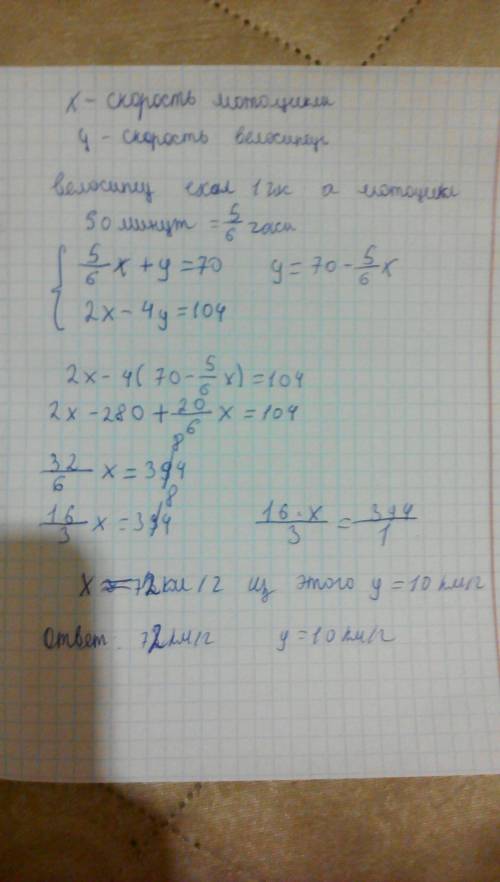 x - скорость мотоцикла
y - скорость велосипед
велосипед ехал 1 час а мотоцикл
50 минут = 5/6 часа
5/6 x + y = 70 y = 70 - 5/6 x
2x - 4y = 104
2x - 4(70 - 5/6 x) = 104
2x - 280 + 20/6 x = 104
32/6 x = 384
16/3 x = 384 16·x/3 = 394/1
x = 72 км/г из этого y = 10 км/г
ответ: 72 км/г y = 10 км/г